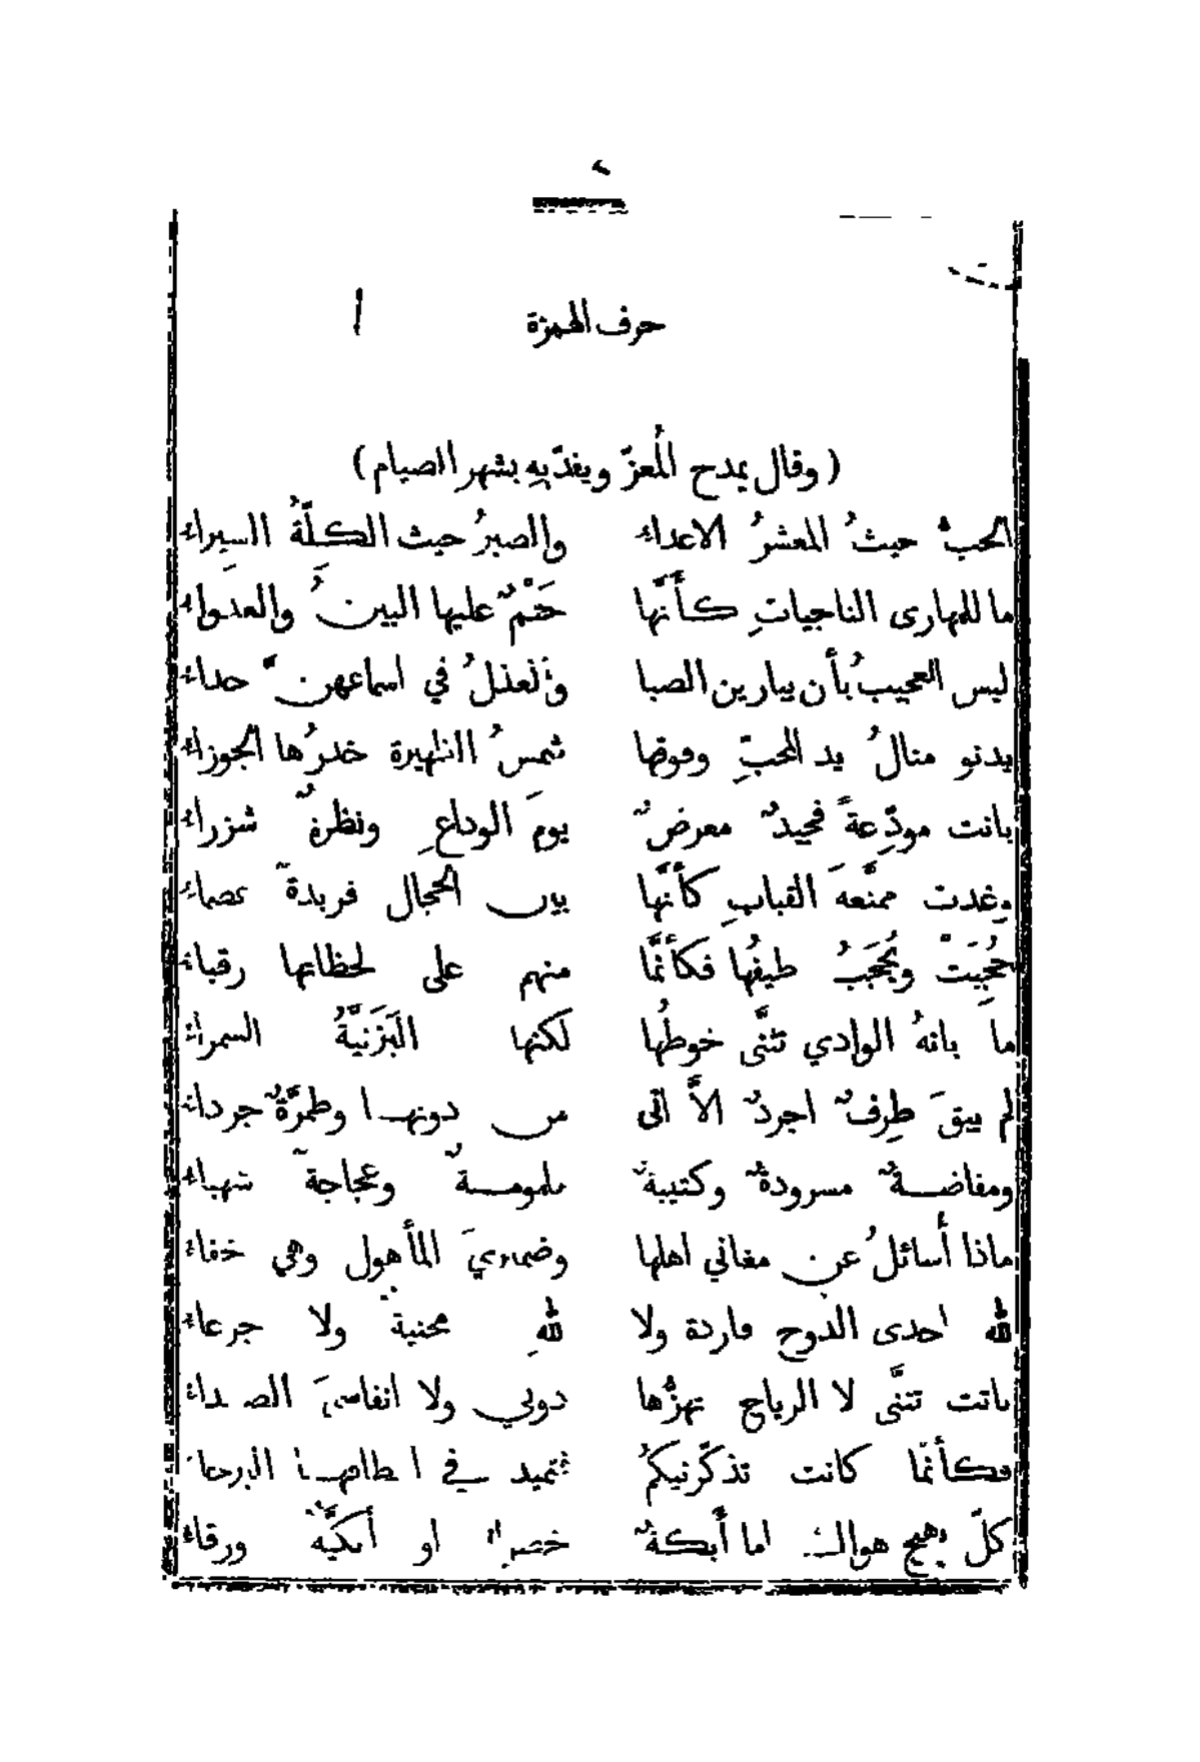 ٢
حرف الهمزة
ا
( وقال يمدح المُعزّ ويفدّيهِ بشهر الصيام )
الحبُّ حيثُ المعشرُ الاعداء والصبرُ حيث الكلَّةُ السيَراء
ما للمهارى الناجياتِ كأَنَّها حَتْمٌ عليها البينُ والعدواء
ليس العجيبُ بأن يبارين الصبا والعذلُ في اسماعهنَّ حداء
يدنو منالُ يد المحبِّ وفوقها شمسُ الظهيرة خدرُها الجوزاء
بانت مودِّعةً فجيدٌ معرضٌ يومَ الوداعِ ونظرةٌ شزراء
وغدت ممنَّعةَ القبابِ كأَنَّها بين الحجال فريدةٌ عصماء
حُجِبَتْ ويُحجَبُ طيفُها فكأَنَّما منهم على لحظاتها رقباء
ما بانهُ الوادي تثنَّى خوطُها لكنها اليَزَنيَّةُ السمراء
لم يبقَ طِرفٌ اجردٌ الاَّ اتى من دونها وطمرَّةٌ جرداء
ومفاضةٌ مسرودةٌ وكتيبةٌ ملمومةٌ وعجاجةٌ شهباء
ماذا أُسائلُ عن مغاني اهلها وضميريَ المأهول وهي خفاء
لله احدى الدوح فاردة ولا للهِ محنيةٌ ولا جرعاء
باتت تثنَّى لا الرياح تهزُّها دوني ولا انفاسيَ الصعداء
فكأَنَّما كانت تذكّرنيكمُ فتميد في اطلالها البرحاء
كلّ يهيج هواك اما أَيكةٌ خضراء او أَيكيَّةٌ ورقاء